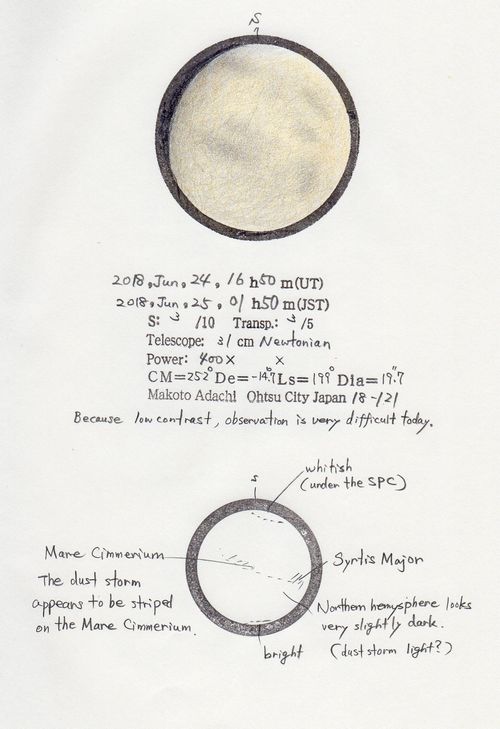 S
2018, Jun, 24, 16 h 50 m(UT)
2018, Jun, 25, 01 h 50 m(JST)
S: 3 /10 Transp.: 3 /5
Telescope: 31 cm Newtonian
Power: 400× ×
CM=252° De=-14.7° Ls=199° Dia=19.7"
Makoto Adachi Ohtsu City Japan 18-121
Because low contrast, observation is very difficult today.
whitish
(under the SPC)
S
Mare Cimmerium
Syrtis Major
The dust storm
appears to be striped
on the Mare Cimmerium.
Northern hemysphere looks
very slightly dark.
(dust storm light?)
bright